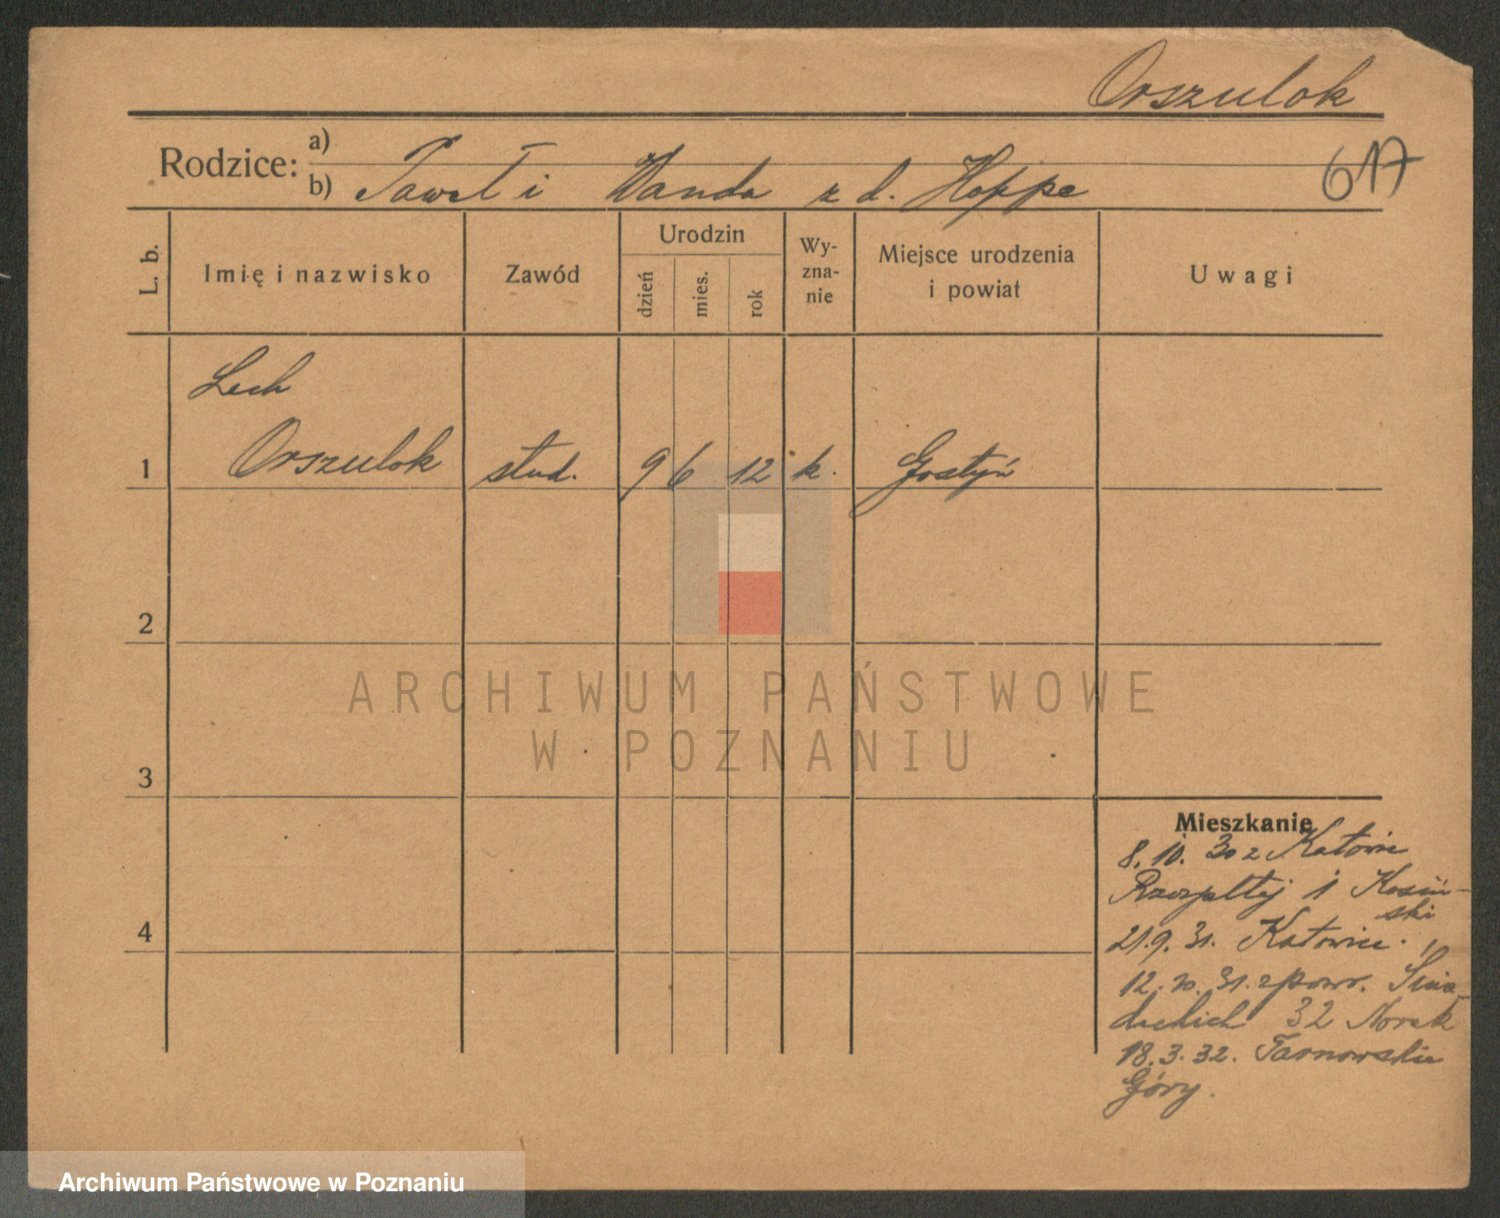 Orszulok
617
Rodzice: a)
b) Paweł i Wanda z d. Hoppe
L. b.
Imię i nazwisko
Zawód
Urodzin
dzień
mies.
rok
Wy-
zna-
nie
Miejsce urodzenia
i powiat
Uwagi
Lech
1 Orszulok stud. 9 6 12 k. Gostyń
2
3
4
Mieszkanie
8. 10. 30 z Katowic
Rzeczpltej 1 Kosiń-
ski
21.9.31. Katowice.
12.10.31. z powr. Śnia-
deckich 32 Norek
18.3.32. Tarnowskie
Góry.
ARCHIWUM PAŃSTWOWE
W POZNANIU
Archiwum Państwowe w Poznaniu